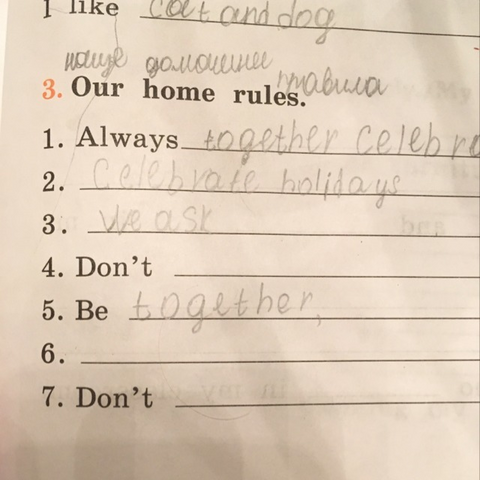 I like cat and dog
наше домашние правила
3. Our home rules.
1. Always together celebra
2. Celebrate holidays
3. We ask
4. Don't
5. Be together,
6.
7. Don't